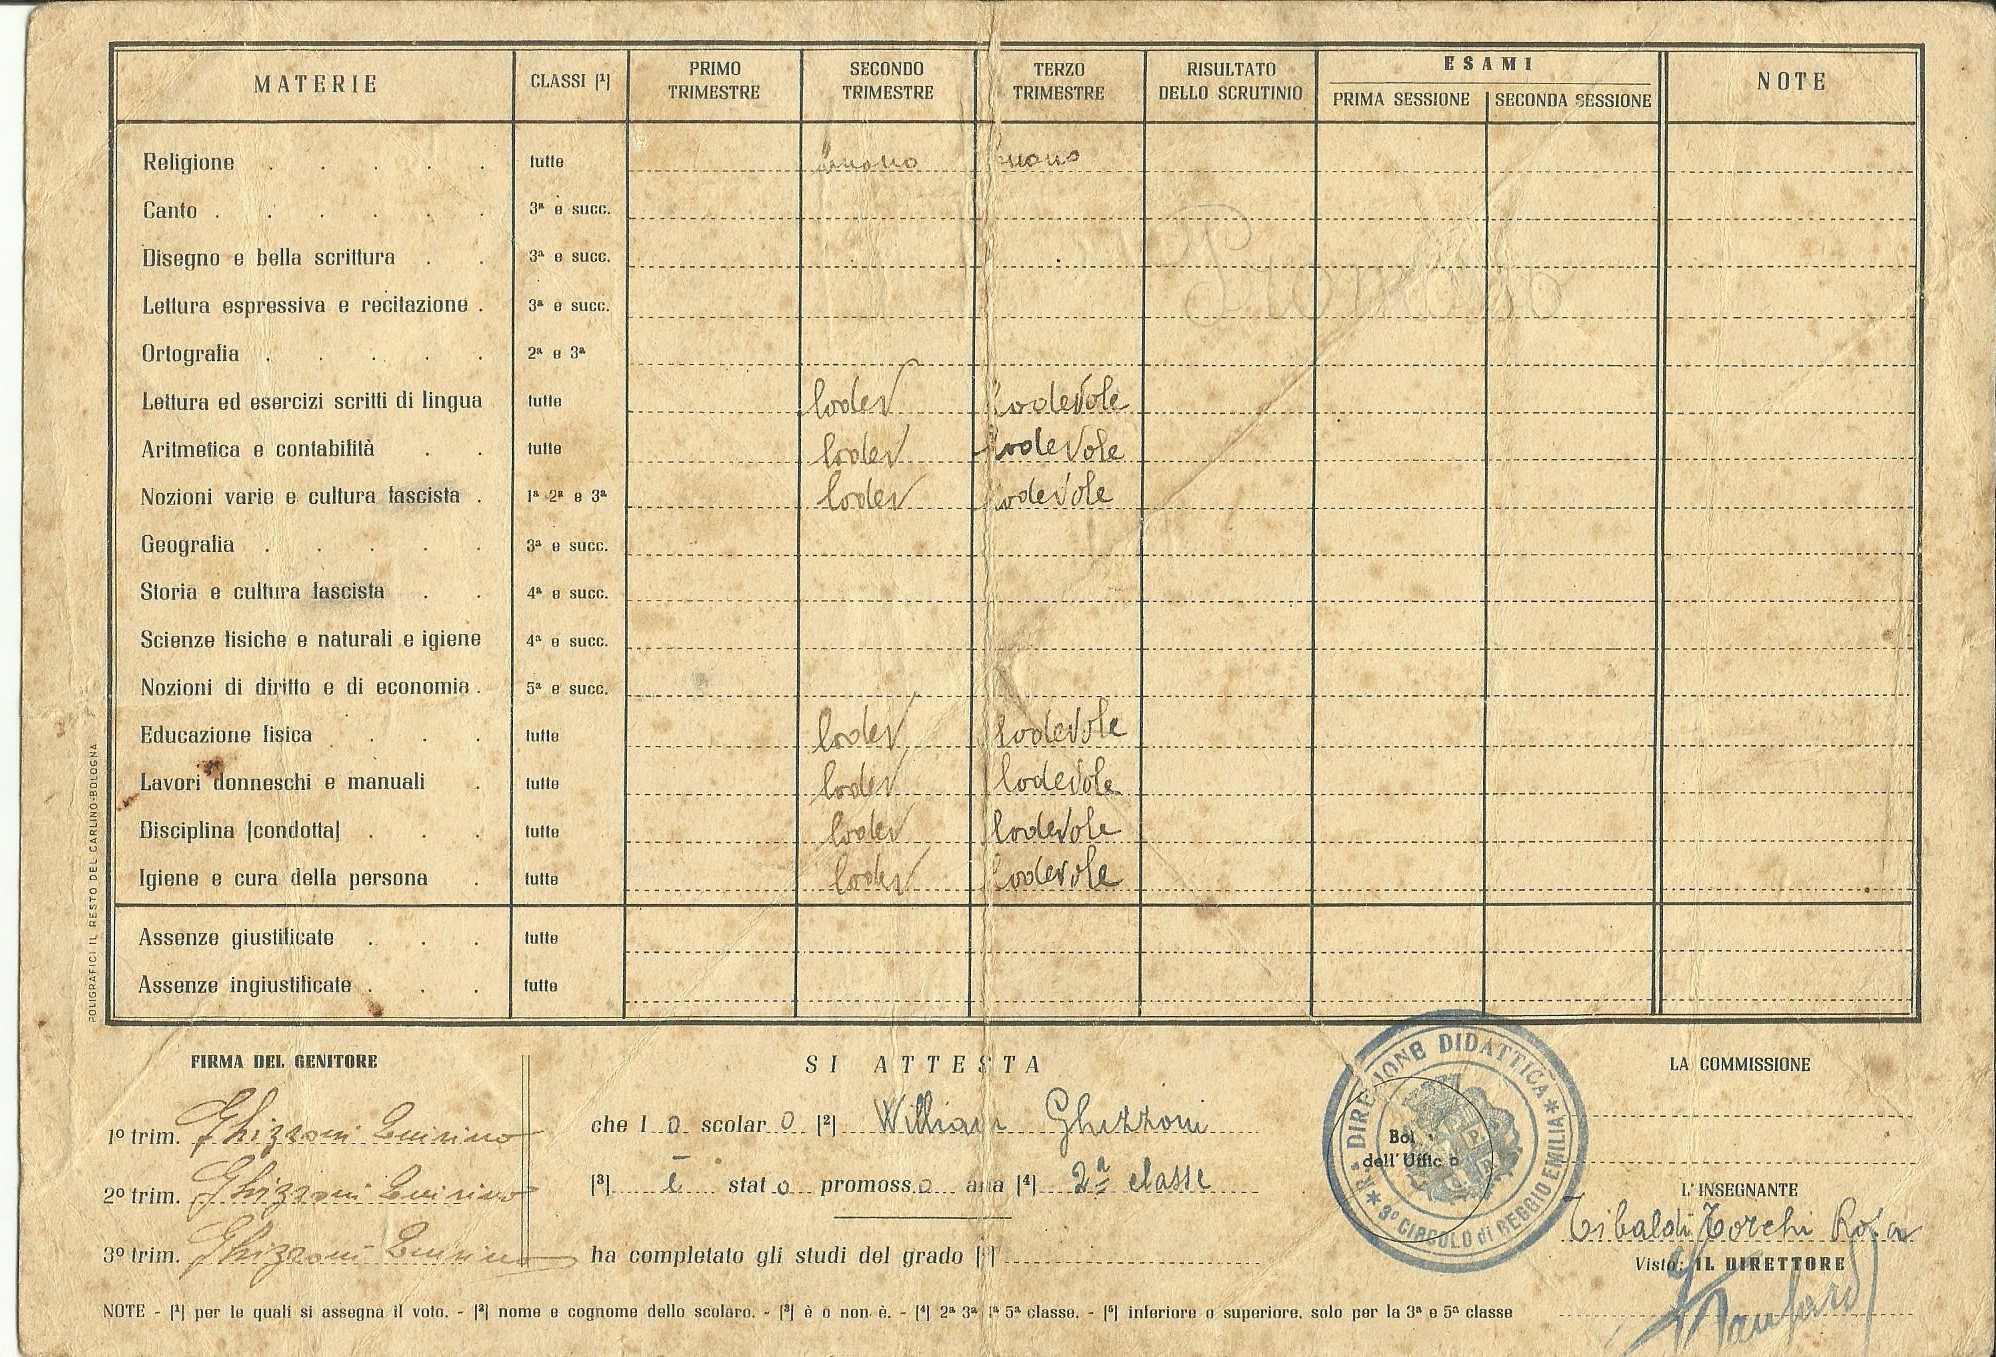 MATERIE CLASSI (¹) PRIMO TRIMESTRE SECONDO TRIMESTRE TERZO TRIMESTRE RISULTATO DELLO SCRUTINIO ESAMI PRIMA SESSIONE SECONDA SESSIONE NOTE
Religione . . . . . tutte buono buono
Canto . . . . . . 3ª e succ.
Disegno e bella scrittura . . 3ª e succ.
Lettura espressiva e recitazione . 3ª e succ.
Ortografia . . . . . 2ª e 3ª
Lettura ed esercizi scritti di lingua tutte lodev lodevole
Aritmetica e contabilità . . tutte lodev lodevole
Nozioni varie e cultura fascista . 1ª 2ª e 3ª lodev lodevole
Geografia . . . . . 3ª e succ.
Storia e cultura fascista . . 4ª e succ.
Scienze fisiche e naturali e igiene 4ª e succ.
Nozioni di diritto e di economia . 5ª e succ.
Educazione fisica . . . . tutte lodev lodevole
Lavori donneschi e manuali . tutte lodev lodevole
Disciplina (condotta) . . . tutte lodev lodevole
Igiene e cura della persona . tutte lodev lodevole
Assenze giustificate . . . tutte
Assenze ingiustificate . . . tutte
POLIGRAFICI IL RESTO DEL CARLINO-BOLOGNA
FIRMA DEL GENITORE
1º trim. Ghizzoni Quirino
2º trim. Ghizzoni Quirino
3º trim. Ghizzoni Quirino
SI ATTESTA
che l o scolar o (²) William Ghizzoni
(³) è stat o promoss o alla (⁴) 2ª classe
ha completato gli studi del grado (⁵)
Rª DIREZIONE DIDATTICA
3º CIRCOLO di REGGIO EMILIA
Bollo
dell'Ufficio
LA COMMISSIONE
L'INSEGNANTE
Tibaldi Torchi Rosa
Visto: IL DIRETTORE
NOTE - (¹) per le quali si assegna il voto. - (²) nome e cognome dello scolaro. - (³) è o non è. - (⁴) 2ª 3ª 4ª 5ª classe. - (⁵) inferiore o superiore, solo per la 3ª e 5ª classe